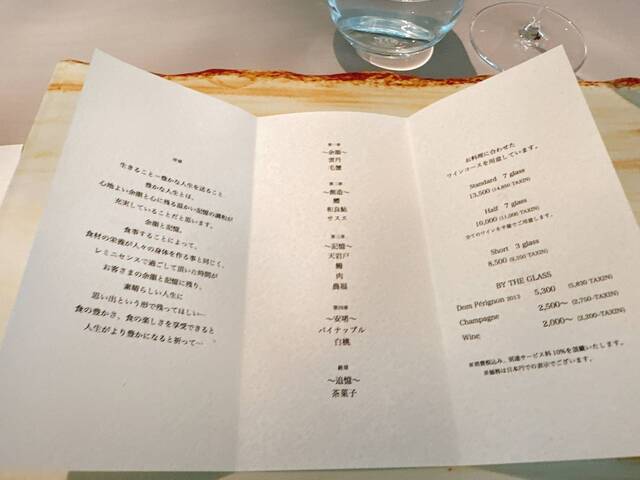 序章
生きること＝豊かな人生を送ること
豊かな人生とは、
心地よい余韻と心に残る温かい記憶の調和が
充実していることだと思います。
余韻と記憶。
食事することによって、
食材の栄養が人々の身体を作る事と同じく、
レミニセンスで過ごして頂いた時間が
お客さまの余韻と記憶に残り、
素晴らしい人生に
思い出という形で残ってほしい…
食の豊かさ、食の楽しさを享受できると
人生がより豊かになると祈って…
第一章
〜余韻〜
雲丹
毛蟹
第二章
〜創造〜
鱧
和良鮎
サスエ
第三章
〜記憶〜
天岩戸
鰻
肉
蕪福
第四章
〜安堵〜
パイナップル
白桃
終章
〜追憶〜
茶菓子
お料理に合わせた
ワインコースを用意しています。
Standard 7 glass
13,500 (14,850 TAXIN)
Half 7 glass
10,000 (11,000 TAXIN)
全てのワインを半量でご用意します。
Short 3 glass
8,500 (9,350 TAXIN)
BY THE GLASS
Dom Pérignon 2013 5,300 (5,830 TAXIN)
Champagne 2,500〜 (2,750-TAXIN)
Wine 2,000〜 (2,200-TAXIN)
※消費税込み、別途サービス料10%を頂戴いたします。
※価格は日本円での表示でございます。